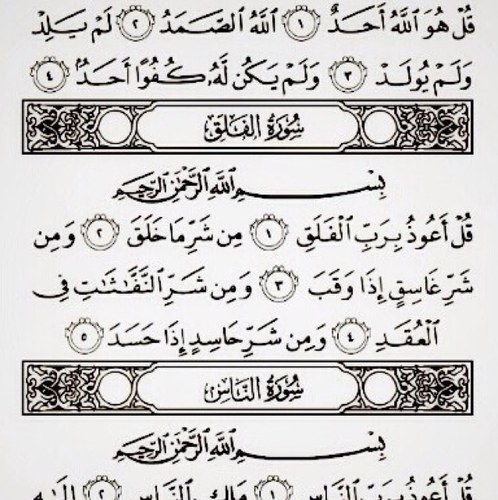 قُلْ هُوَ ٱللَّهُ أَحَدٌ ١ ٱللَّهُ ٱلصَّمَدُ ٢ لَمْ يَلِدْ
وَلَمْ يُولَدْ ٣ وَلَمْ يَكُن لَّهُۥ كُفُوًا أَحَدٌۢ ٤
سُورَةُ الفَلَقِ
بِسْمِ ٱللَّهِ ٱلرَّحْمَٰنِ ٱلرَّحِيمِ
قُلْ أَعُوذُ بِرَبِّ ٱلْفَلَقِ ١ مِن شَرِّ مَا خَلَقَ ٢ وَمِن
شَرِّ غَاسِقٍ إِذَا وَقَبَ ٣ وَمِن شَرِّ ٱلنَّفَّٰثَٰتِ فِى
ٱلْعُقَدِ ٤ وَمِن شَرِّ حَاسِدٍ إِذَا حَسَدَ ٥
سُورَةُ النَّاسِ
بِسْمِ ٱللَّهِ ٱلرَّحْمَٰنِ ٱلرَّحِيمِ
قُلْ أَعُوذُ بِرَبِّ ٱلنَّاسِ ١ مَلِكِ ٱلنَّاسِ ٢ إِلَٰهِ